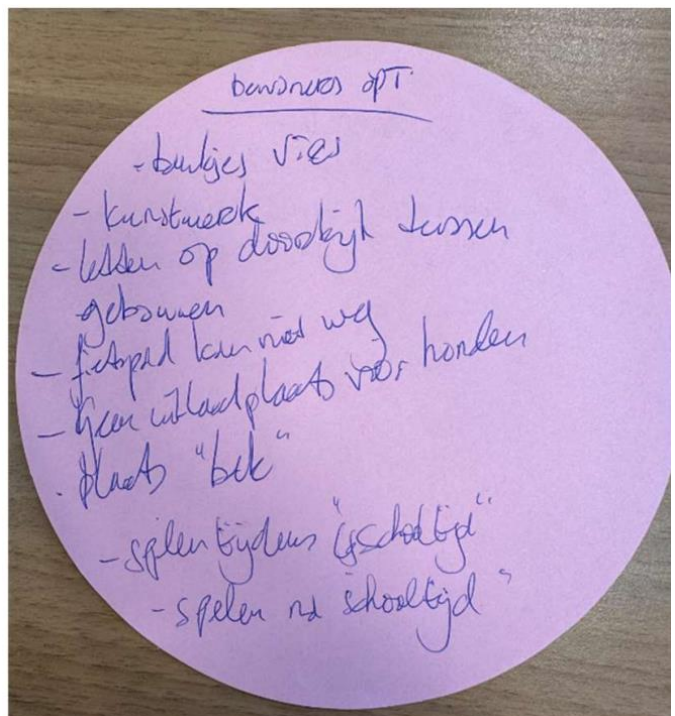 bewoners opT
- bankjes vies
- kunstwerk
- letten op doorkijk tussen
gebouwen
- fietspad kan niet weg
- geen uitlaadplaats voor honden
. plaats "bek"
- spelen tijdens "schooltijd"
- spelen na schooltijd "